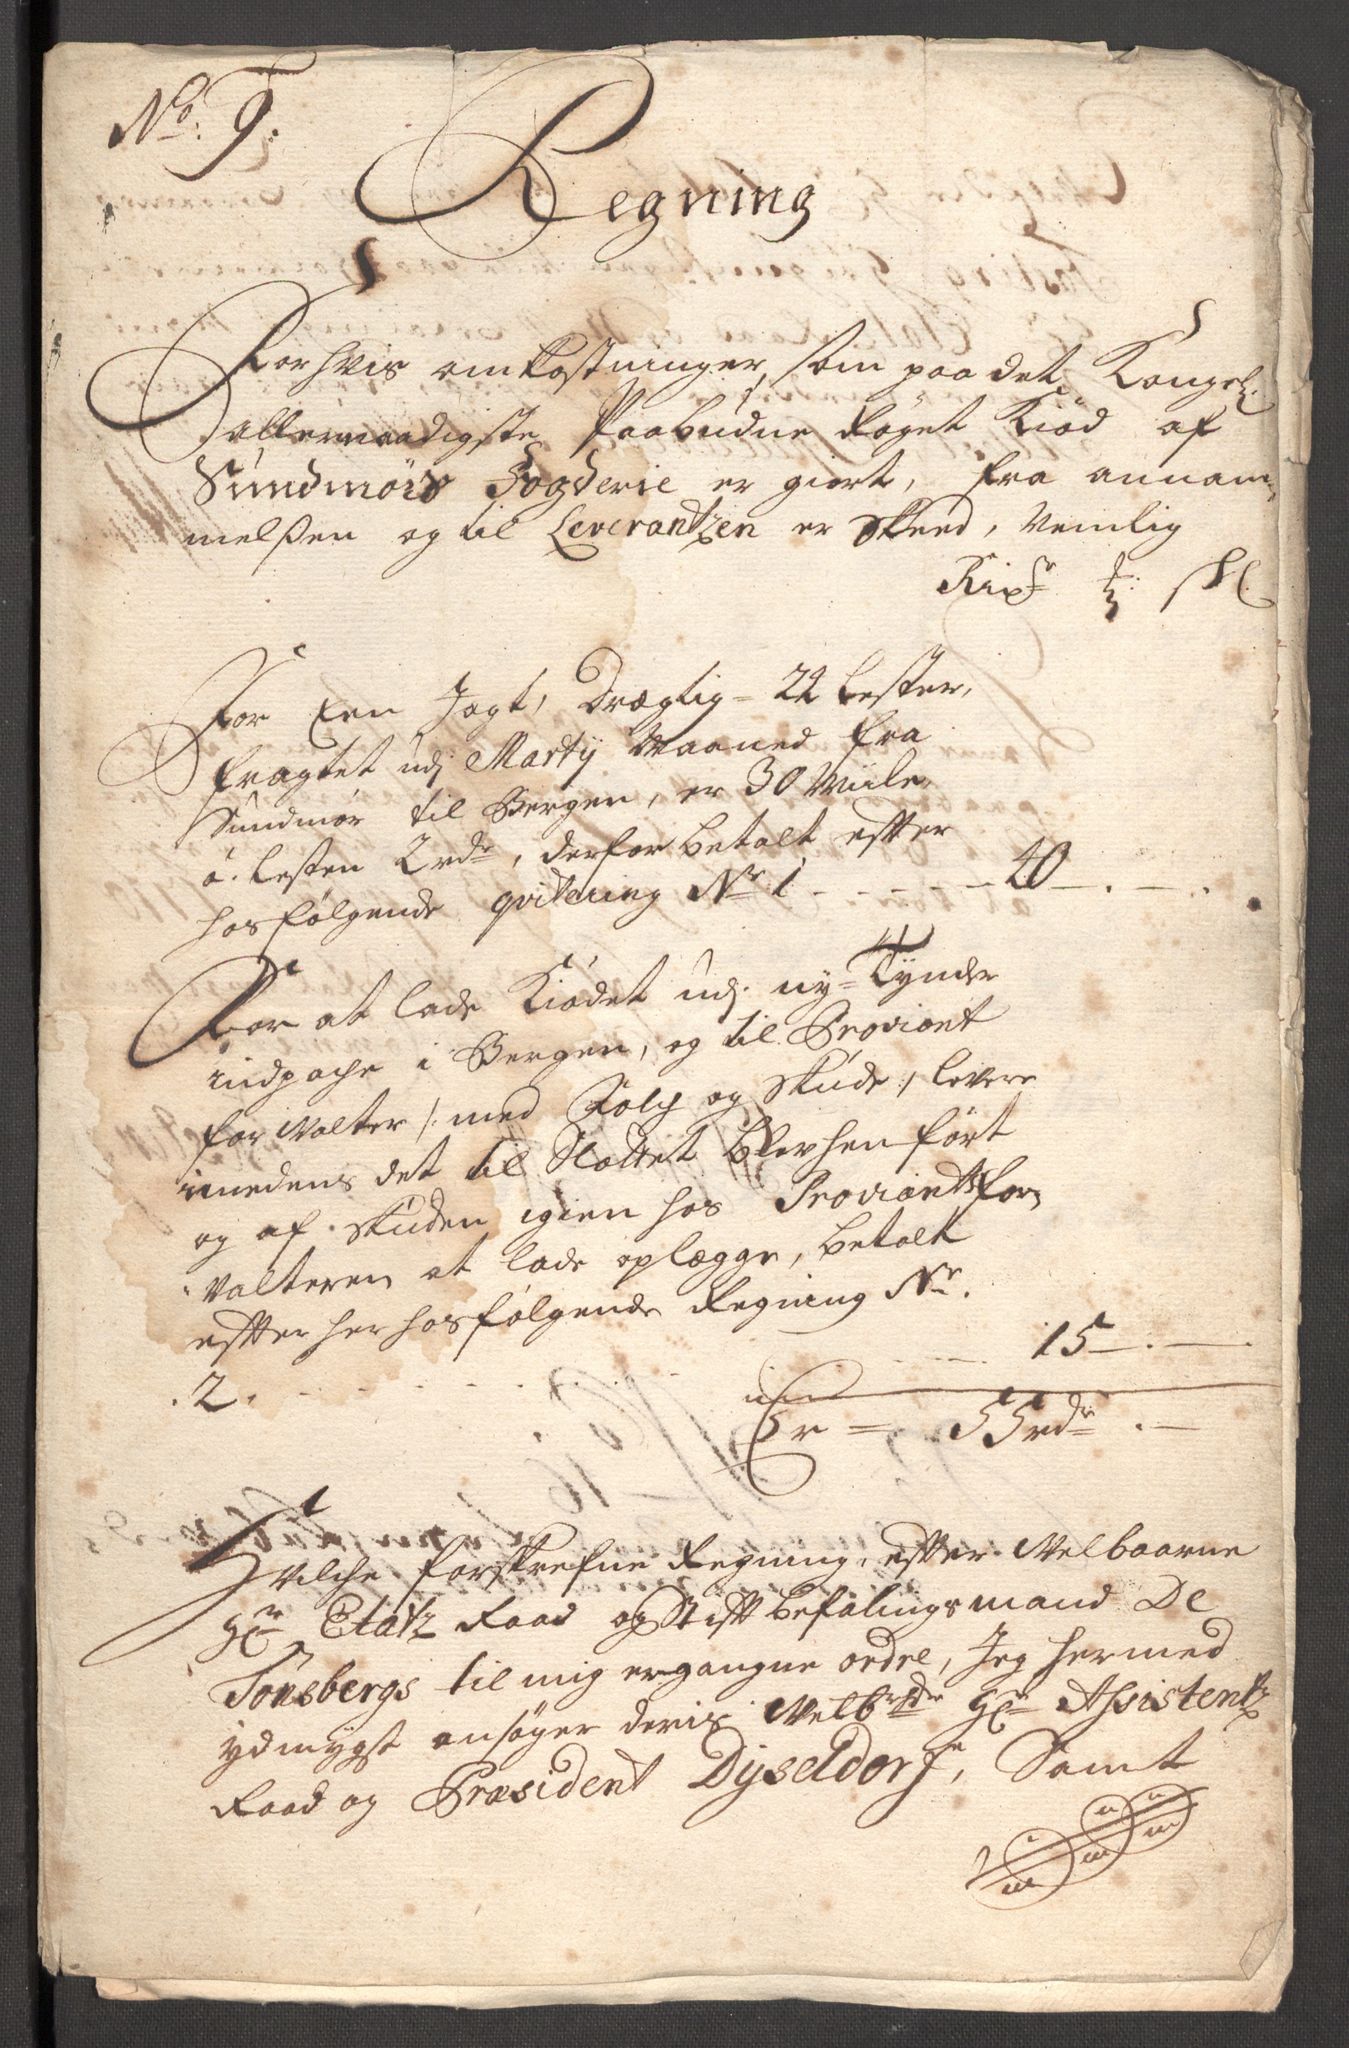 No. 9.
Regning
For hvis omkostninger, som paa det Kongel:
allernaadigste Paabudne Røget Kiød af
Sundmørs Fogderie er giort, fra annam¬
melßen og til Leverantzen er skeed, Nemlig
Rixdr ß.
For Een Jagt, Drægtig = 22 Lester,
fragtet udj Martij Maaned fra
Sundmør til Bergen, er 30 Miile
a. Lesten 2 rdr, derfor betalt efter
hosfølgende qvitering Nr 1 - - - - - - 40 - . -
For at lade Kiødet udj. ny = Tynder
indpache i Bergen, og til Proviant
forvalter /: med Folch og Skude :/ levere
imedens det til Slottet blev henført
og af Skuden igien hos Proviantfor¬
valteren at lade oplægge, betalt
efter her hosfølgende Regning Nr.
. 2 . - - - - - - - - 15 - . -
Er = 55 rdr . -
Hvilche forskrefne Regning, efter Velbaarne
Hr Etatz Raad og Stiftbefalingsmand De
Tönsbergs til mig ergangne ordre, Jeg hermed
ydmygst ansøger deris Velbrdr Hr Assistentz
Raad og Præsident Dyseldorf, Samt